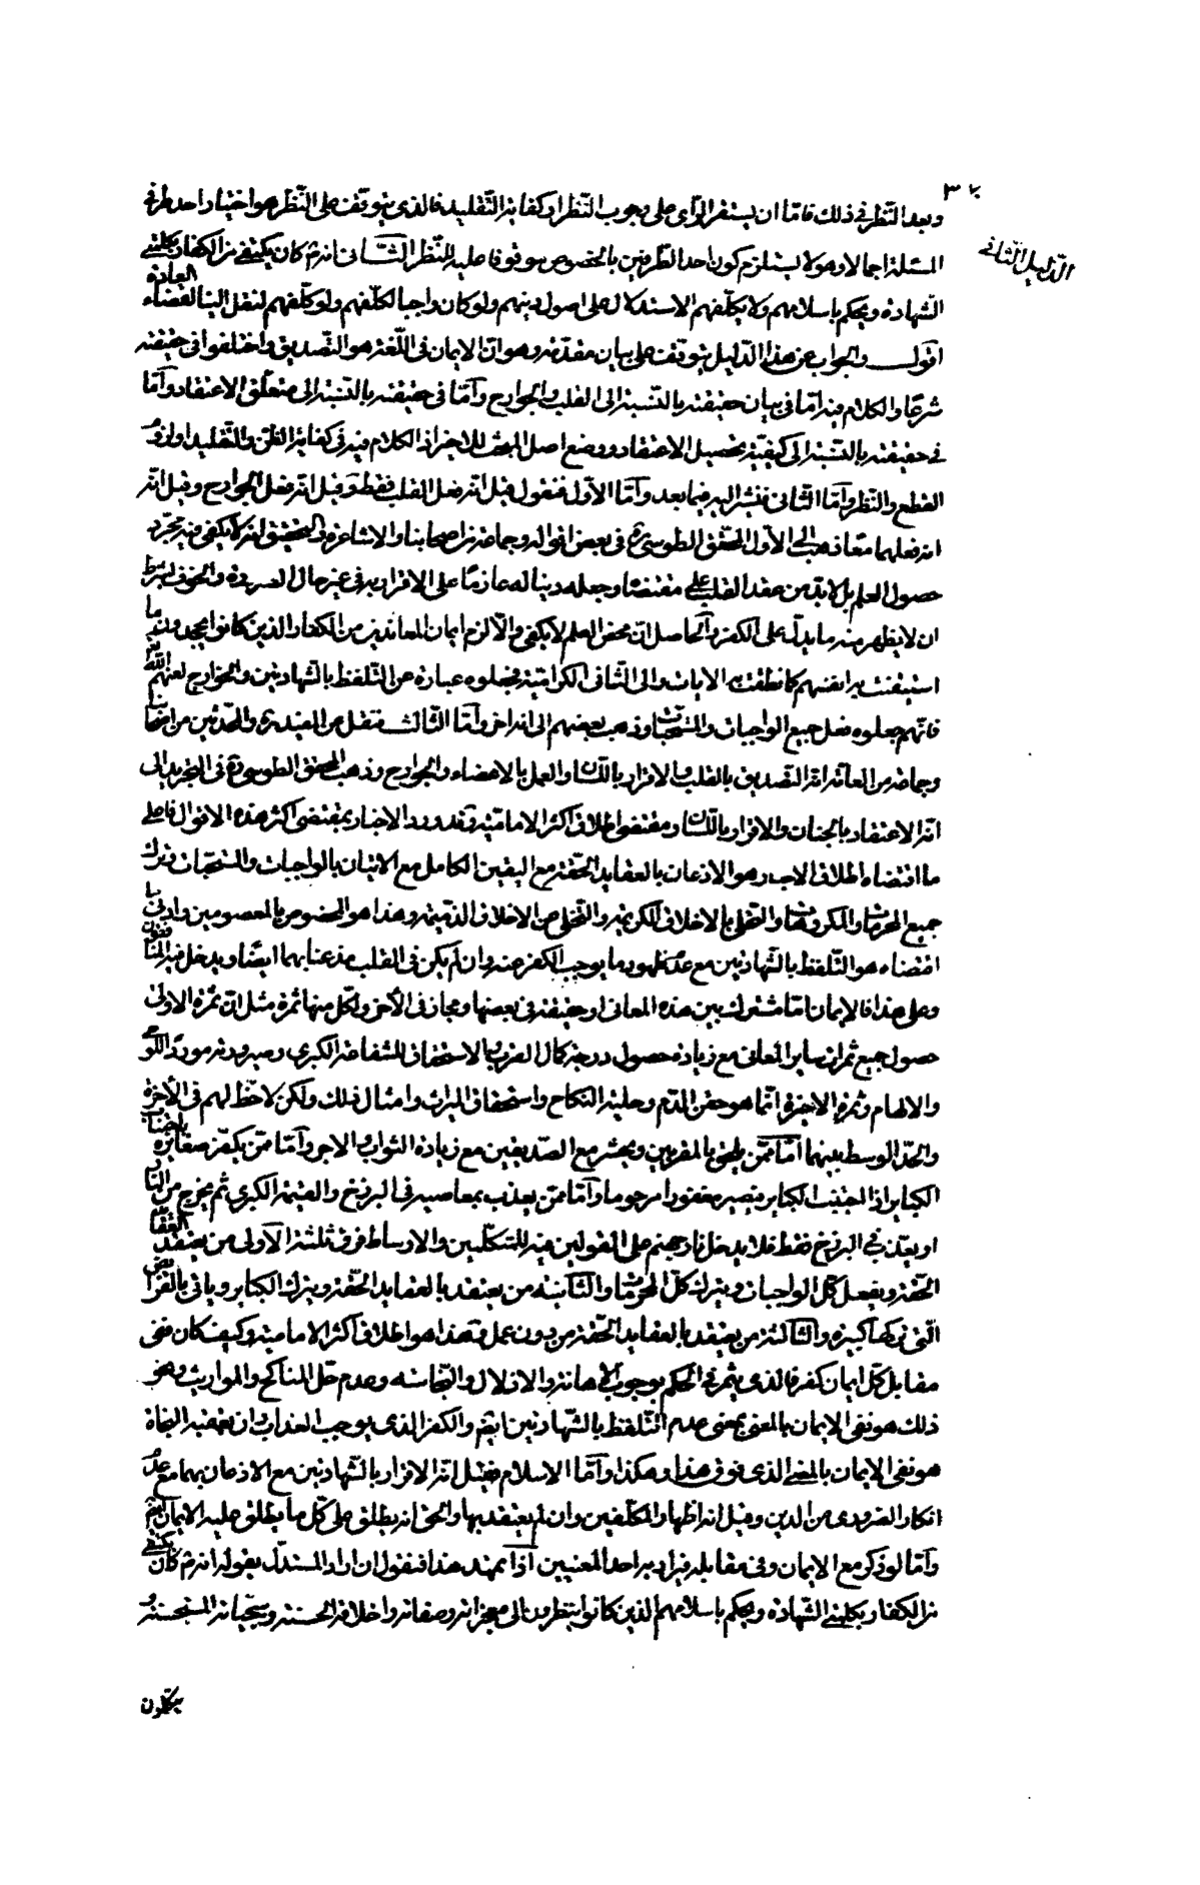 ٣٢
الدليل الثانى
وبعد النظر فى ذلك فامّا ان يستقر الرّأى على وجوب النّظر او كفاية التّقليد فالذى يتوقّف على النّظر هو اختيار احد طرفى
المسئلة اجمالا وهو لا يستلزم كون احد الطّرفين بالخصوص موقوفا عليه للنّظر الثّانى انّه ص كان يكتفى من الكفار بكلمتى
الشّهادة ويحكم باسلامهم ولا يكلّفهم الاستدلال على اصول دينهم ولو كان واجبا لكلّفهم ولو كلّفهم لنقل الينا لقضاء العادة
اقول والجواب عن هذا الدّليل يتوقّف على بيان مقدّمة وهو انّ الايمان فى اللّغة هو التّصديق واختلفوا فى حقيقته
شرعًا والكلام فيه امّا فى بيان حقيقته بالنّسبة الى القلب والجوارح وامّا فى حقيقته بالنّسبة الى متعلّق الاعتقاد وامّا
فى حقيقته بالنّسبة الى كيفيّة تحصيل الاعتقاد ووضع اصل المبحث للاخير اذ الكلام فيه فى كفاية الظنّ والتّقليد او لزوم
القطع والنّظر وامّا الثّانى فنشير اليه فيما بعد وامّا الاوّل فنقول قيل انّه فعل القلب فقط وقيل انّه فعل الجوارح وقيل انّه
انه فعلهما معًا ذهب الى الاوّل المحقّق الطوسى ره فى بعض اقواله وجماعة من اصحابنا والاشاعرة والتحقيق انه لا يكفى فيه مجرّد
حصول العلم بل لا بدّ من عقد القلب على مقتضاه وجعله دينا له عازمًا على الاقرار به فى غير حال الضرورة والخوف بشرط
ان لا يظهر منه ما يدلّ على الكفر والحاصل انّ محض العلم لا يكفى والّا لزم ايمان المعاندين من الكفار الذين كانوا يجحدون ما
استيقنت به انفسهم كما نطقت به الايات والى الثّانى الكرامية فجعلوه عبارة عن التّلفظ بالشّهادتين والخوارج لعنهم اللّه
فانّهم جعلوه فعل جميع الواجبات والمستحبات وذهب بعضهم الى انه اخر وامّا الثّالث فنقل عن المفيد ره والمحدّثين من اصحابنا
وجماعة من العامّة انّه التصديق بالقلب والاقرار باللّسان والعمل بالاعضاء والجوارح وذهب المحقق الطوسى ره فى التجريد الى
انّه الاعتقاد بالجنان والاقرار باللّسان ومقتضى اطلاق اكثر الامامية وقد ورد الاخبار بمقتضى اكثر هذه الاقوال فاعلى
ما اقتضاه اطلاق الاخبار وهو الاذعان بالعقايد الحقّة مع اليقين الكامل مع الاتيان بالواجبات والمستحبات وترك
جميع المحرمات والمكروهات والتحلّى بالاخلاق الكريمة والتخلّى عن الاخلاق الذّميمة وهذا هو المخصوص بالمعصومين وادنى ما
اقتضاه هو التّلفظ بالشّهادتين مع عدم ظهور ما يوجب الكفر منه وان لم يكن فى القلب مذعنا بهما ايضًا ويدخل فيه المنافقون
وعلى هذا فالايمان امّا مشترك بين هذه المعانى او حقيقة فى بعضها ومجاز فى الاخر ولكل منها ثمرة مثل انّ ثمرة الاولى
حصول جميع ثمرات ساير المعانى مع زيادة حصول درجة كمال القرب والاستحقاق للشفاعة الكبرى وصيرورته مورد الوحى
والالهام وثمرة الاخيرة انّما هو حقن الدّم وحلية النكاح واستحقاق الميراث وامثال ذلك ولكن لا حظّ لهم فى الآخرة
والحدّ الوسط بينهما امّا ممّن يلحق بالمقربين ويحشر مع الصّديقين مع زيادة الثّواب والاجر وامّا ممّن يكفّر صغايره باجتناب
الكباير اذا اجتنب الكباير فيصير مغفورا مرحوما وامّا ممّن يعذب بمعاصيه فى البرزخ والقيمة الكبرى ثم يخرج من النّار
او يعذّب فى البرزخ فقط فلا يدخل نار جهنم على القولين فيه للمتكلّمين والاوساط فرق ثلثة الاولى من يعتقد العقايد
الحقّة ويفعل كلّ الواجبات ويترك كلّ المحرمات والثّانية من يعتقد بالعقايد الحقّة ويترك الكباير وياتى بالفرايض
الّتى تركها كبيرة والثّالثة من يعتقد بالعقايد الحقّة من دون عمل وهذا هو اطلاق اكثر الامامية وكيف كان ففى
مقابل كلّ ايمان كفر فالذى يثمر فى الحكم بوجوب الاهانة والاذلال والنّجاسة وعدم حلّ المناكح والمواريث ونحو
ذلك هو نفى الايمان بالمعنى بمعنى عدم التّلفظ بالشّهادتين ايضم والكفر الذى يوجب العذاب وان تعقبه النجاة
هو نفى الايمان بالمعنى الذى فوق هذا وهكذا وامّا الاسلام فقيل انّه الاقرار بالشّهادتين مع الاذعان بهما مع عدم
انكار الضرورى من الدين وقيل انه اظهار المكلّفين وان لم يعتقد بها والحق انه يطلق على كلّ ما يطلق عليه الايمان
وامّا لو ذكر مع الايمان وفى مقابله فيراد به احد المعنيين اذا تمهد هذا فنقول ان اراد المستدلّ بقوله انّه ص كان يكتفى
من الكفار بكلمتى الشّهادة ويحكم باسلامهم الذين كانوا ينظرون الى معجزاته وصفاته واخلاقه الحسنة وسجيّاته المستحسنة